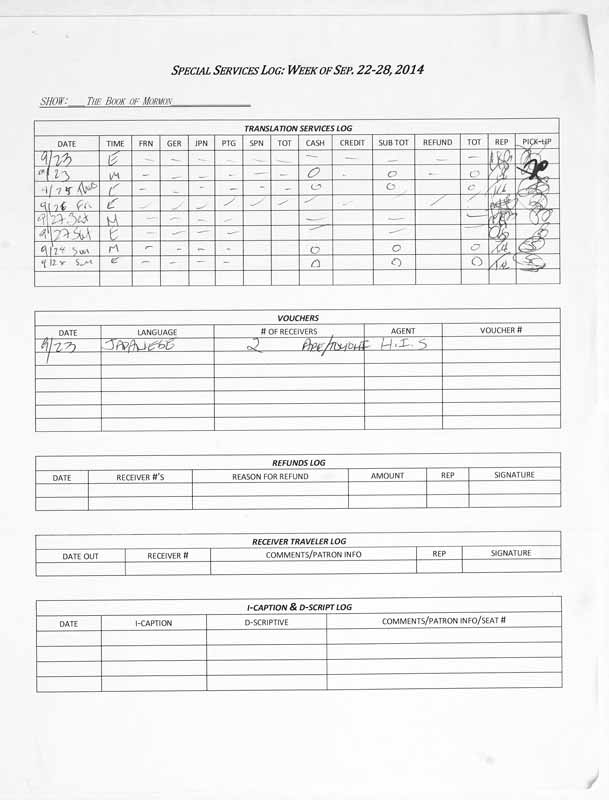 SPECIAL SERVICES LOG: WEEK OF SEP. 22-28, 2014
SHOW: THE BOOK OF MORMON
TRANSLATION SERVICES LOG
DATE TIME FRN GER JPN PTG SPN TOT CASH CREDIT SUB TOT REFUND TOT REP PICK-UP
9/23 E - - - - - - - - - - -
9/23 M - - - - - - 0 - 0 - 0
E 0 0 0
9/26 Fri E
9/27 Sat M
9/27 Sat E
Sun M - - - - 0 0 0
Sun E - - - - 0 0 0
VOUCHERS
DATE LANGUAGE # OF RECEIVERS AGENT VOUCHER #
9/23 JAPANESE 2 H.I.S
REFUNDS LOG
DATE RECEIVER #'S REASON FOR REFUND AMOUNT REP SIGNATURE
RECEIVER TRAVELER LOG
DATE OUT RECEIVER # COMMENTS/PATRON INFO REP SIGNATURE
I-CAPTION & D-SCRIPT LOG
DATE I-CAPTION D-SCRIPTIVE COMMENTS/PATRON INFO/SEAT #